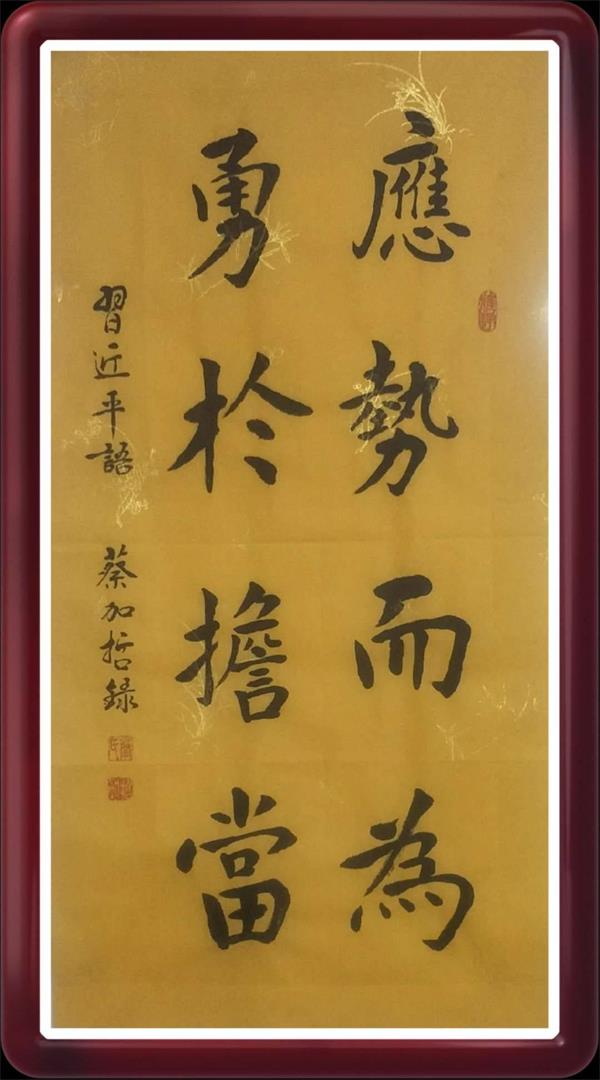 應勢而為
勇於擔當
習近平語 蔡加哲録